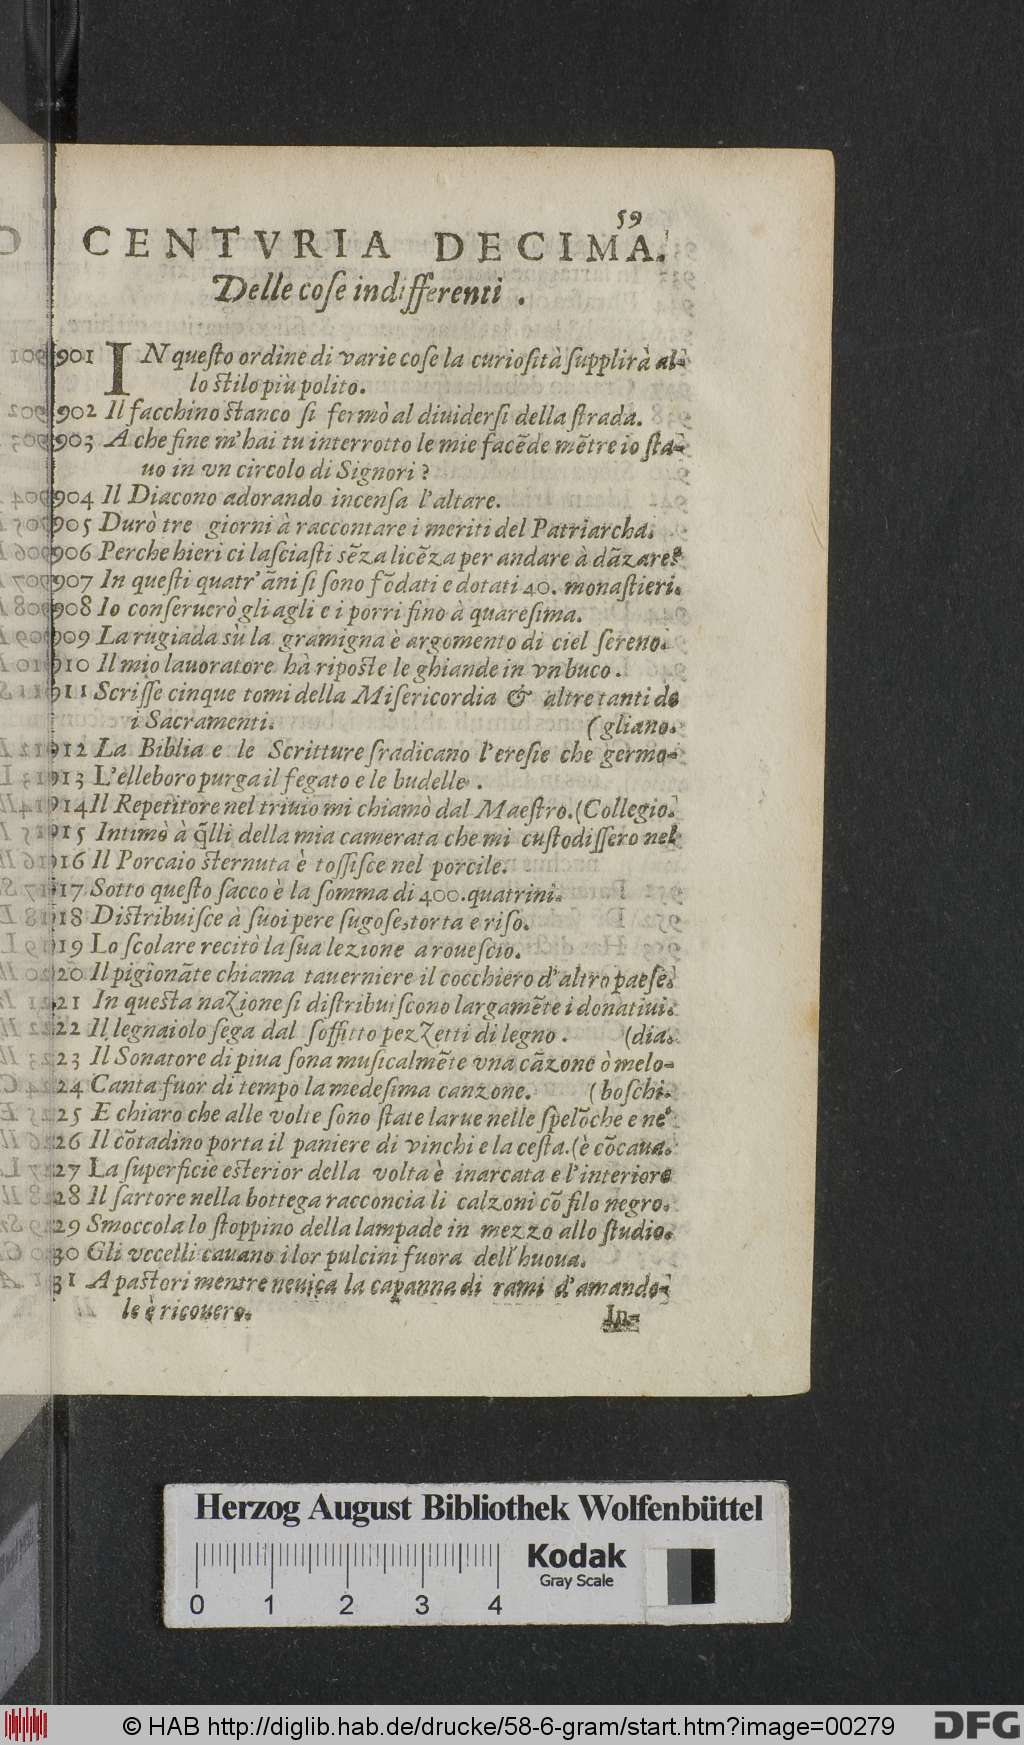 59
CENTVRIA DECIMA.
Delle coſe indifferenti .
901 IN queſto ordine di varie coſe la curioſità ſupplirà al-
lo ſtilo più polito.
902 Il facchino ſtanco ſi fermò al diuiderſi della ſtrada.
903 A che fine m'hai tu interrotto le mie facẽde mẽtre io ſta-
uo in vn circolo di Signori ?
904 Il Diacono adorando incenſa l'altare.
905 Durò tre giorni à raccontare i meriti del Patriarcha.
906 Perche hieri ci laſciaſti sẽza licẽza per andare à dãzare?
907 In queſti quatr'ãni ſi ſono fõdati e dotati 40. monaſtieri.
908 Io conſeruerò gli agli e i porri fino à quareſima.
909 La rugiada sù la gramigna è argomento di ciel ſereno.
910 Il mio lauoratore hà ripoſte le ghiande in vn buco .
911 Scriſſe cinque tomi della Miſericordia & altre tanti de
i Sacramenti. (gliano.
912 La Biblia e le Scritture ſradicano l'ereſie che germo-
913 L'elleboro purga il fegato e le budelle .
914 Il Repetitore nel triuio mi chiamò dal Maeſtro.(Collegio.
915 Intimò à q̃lli della mia camerata che mi cuſtodiſſero nel
916 Il Porcaio ſternuta è toſſiſce nel porcile.
917 Sotto queſto ſacco è la ſomma di 400. quatrini.
918 Diſtribuiſce à ſuoi pere ſugoſe, torta e riſo.
919 Lo ſcolare recitò la ſua lezione a roueſcio.
920 Il pigionãte chiama tauerniere il cocchiero d'altro paeſe.
21 In queſta nazione ſi diſtribuiſcono largamẽte i donatiui.
22 Il legnaiolo ſega dal ſoffitto pezzetti di legno . (dia.
23 Il Sonatore di piua ſona muſicalmẽte vna cãzone ò melo-
24 Canta fuor di tempo la medeſima canzone. (boſchi.
25 E chiaro che alle volte ſono ſtate larue nelle ſpelõche e ne'
26 Il cõtadino porta il paniere di vinchi e la ceſta.(è cõcaua.
27 La ſuperficie eſterior della volta è inarcata e l'interiore
28 Il ſartore nella bottega racconcia li calzoni cõ filo negro.
29 Smoccola lo ſtoppino della lampade in mezzo allo ſtudio.
30 Gli vccelli cauano i lor pulcini fuora dell'huoua.
31 A paſtori mentre neuica la capanna di rami d'amando-
le è ricouero.
In-
Herzog August Bibliothek Wolfenbüttel
Kodak
Gray Scale
0 1 2 3 4
© HAB http://diglib.hab.de/drucke/58-6-gram/start.htm?image=00279
DFG